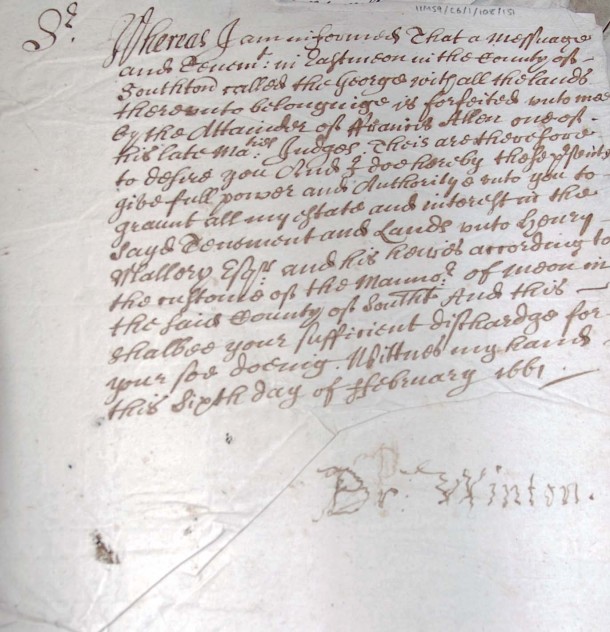 11M59/C6/1/108/151
Sr
Whereas I am informed That a Messuage
and Tenemt. in Eastmeon in the County of
Southton called the George with all the lands
thereunto belonginge is forfeited unto mee
by the Attainder of ffrancis Allen one of
his late Maties Judges. Theis are therefore
to desire you And I doe hereby these psents
give full power and Authoritye unto you to
graunt all my estate and interest in the
sayd Tenement and Lands unto Henry
Mallory Esqr. and his heires according to
the custome of the Mannor. of meon in
the said County of Southt. And this
shalbee your sufficient dischardge for
your soe doeing. Wittnes my hand
this Sixth day of ffebruary 1661.
Br: Winton.